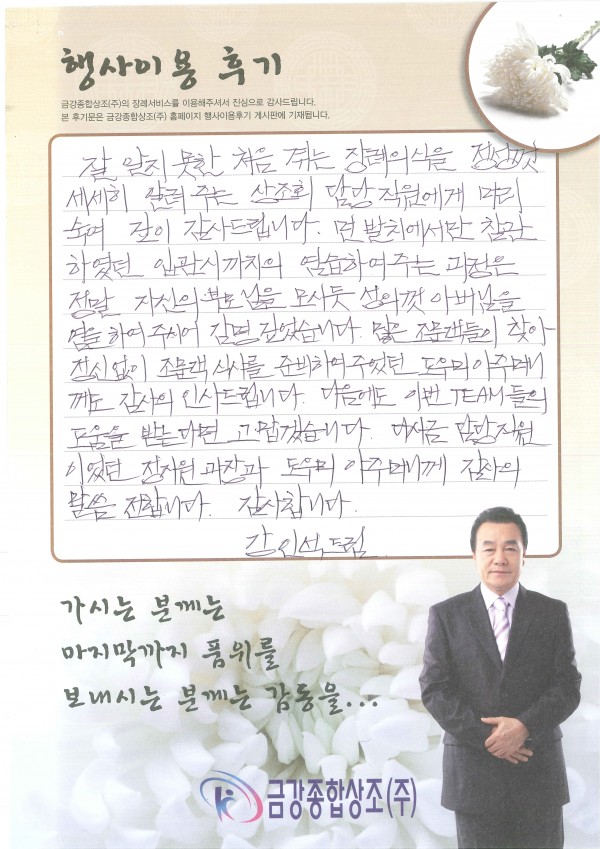 행사이용 후기
금강종합상조(주)의 장례서비스를 이용해주셔서 진심으로 감사드립니다.
본 후기문은 금강종합상조(주) 홈페이지 행사이용후기 게시판에 기재됩니다.
잘 알지 못한 처음 겪는 장례의식을 정성껏
세세히 알려 주는 상조회 담당직원에게 머리
숙여 깊이 감사드립니다. 먼 발치에서만 참관
하였던 입관시까지의 염습하여주는 과정은
정말 자신의 부모님을 모시듯 성의껏 아버님을
염을 하여 주시어 감명 깊었습니다. 많은 조문객들이 찾아
정신없이 조문객 식사를 준비하여 주었던 도우미 아주머니
께도 감사의 인사드립니다. 다음에도 이번 TEAM들의
도움을 받는다면 고맙겠습니다. 다시금 담당직원
이었던 장지원 과장과 도우미 아주머니께 감사의
말씀 전합니다. 감사합니다.
인석드림
가시는 분께는
마지막까지 품위를
보내시는 분께는 감동을...
금강종합상조(주)